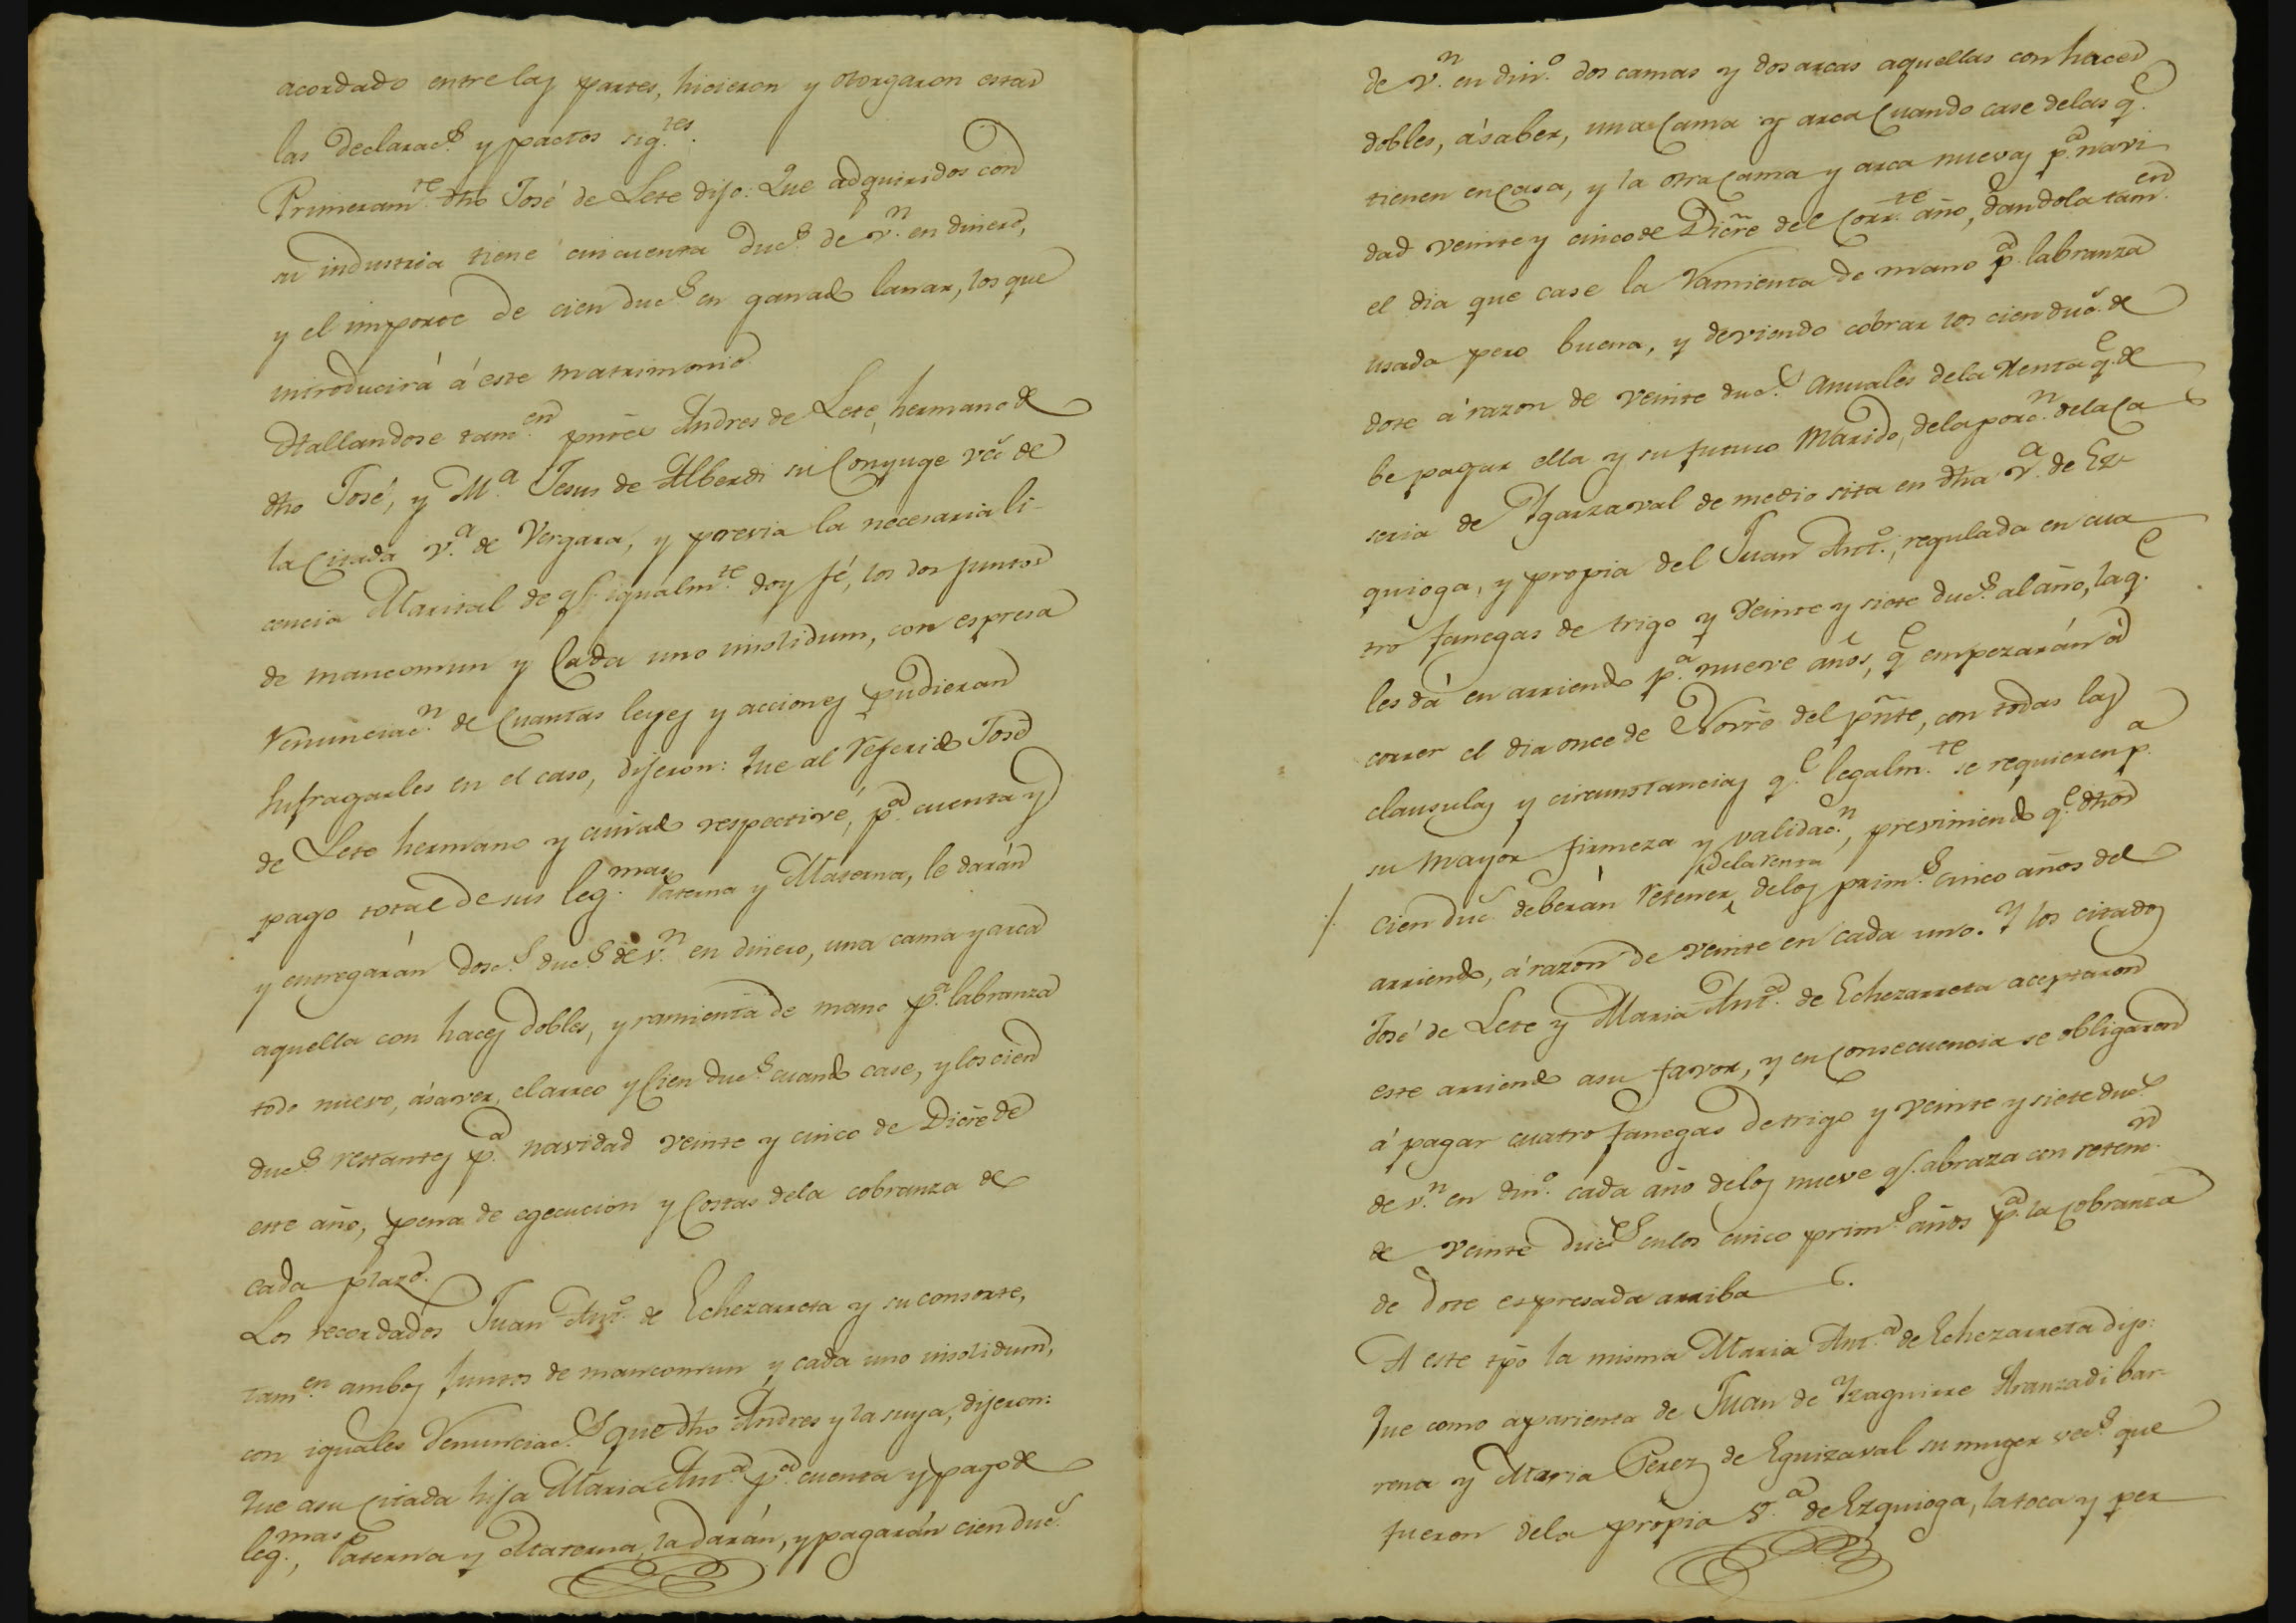 acordado entre las partes, hicieron y otorgaron estas
las declarac.s y pactos sig.tes.
Primeram.te dho José de Lete dijo: Que adquiridos con
su industria tiene cincuenta duc.s de v.n en dinero,
y el importe de cien duc.s en ganado lanar, los que
introducirá á este matrimonio.
Hallandose tam.en pntes Andres de Lete, hermano de
dho José, y M.a Jesus de Alberdi su Conyuge vec.s de
la Citada v.a de Vergara, y previa la necesaria li-
cencia Marital de q.e igualm.te doy fé, los dos juntos
de mancomun y Cada uno insolidum, con espresa
renunciac.n de Cuantas leyes y acciones pudieran
sufragarles en el caso, dijeron: Que al referido José
de Lete hermano y cuñado respectivé, p.a cuenta y
pago total de sus leg.mas Paterna y Materna, le darán
y entregarán dosc.s duc.s de v.n en dinero, una cama y arca
aquella con haces dobles, y ramienta de mano p.a labranza
todo nuevo, ásaver, el arreo y Cien duc.s cuando case, y los cien
duc.s restantes p.a navidad veinte y cinco de Dicre de
este año, pena de egecucion y Costas dela cobranza de
cada plazo.
Los recordados Juan Ant.o de Echezarreta y su consorte,
tam.en ambos juntos de mancomun y cada uno insolidum,
con iguales renunciac.s que dho Andres y la suya, dijeron:
Que asu Citada hija Maria Ant.a p.a cuenta y pago de
leg.mas, Paterna y Materna, la darán, y pagarán cien duc.s
de v.n en din.o dos camas y dos arcas aquellas con haces
dobles, ásaber, una Cama y arca Cuando case delas q.e
tienen en Casa, y la otra Cama y arca nuevas p.a navi
dad veinte y cinco de Dicre del Corr.te año, dandola tam.en
el dia que case la ramienta de mano p.a labranza
usada pero buena, y deviendo cobrar los cien duc.s de
dote á razon de veinte duc.s anuales dela renta q.e de
be pagar ella y su futuro Marido, dela porc.n dela Ca
seria de Igarzaval de medio sita en dha v.a de Ez-
quioga, y propia del Juan Ant.o, regulada en cua
tro fanegas de trigo y veinte y siete duc.s al año, la q.e
les dá en arriendo p.a nueve años, q.e empezarán á
correr el dia once de Novre del pnte, con todas las
clausulas y circunstancias q.e legalm.te se requieren p.a
su mayor firmeza y validac.n, previniendo q.e dhos
dela renta
cien duc.s deberán retener delos prim.s cinco años del
arriendo, á razon de veinte en cada uno. Y los citados
José de Lete y Maria Ant.a de Echezarreta aceptaron
este arriendo asu favor, y en Consecuencia se obligaron
á pagar cuatro fanegas de trigo y veinte y siete duc.s
de v.n en din.o cada año delos nueve q.e abraza con retenc.n
de veinte duc.s enlos cinco prim.s años p.a la Cobranza
de dote espresada arriba.
A este tpo la misma Maria Ant.a de Echezarreta dijo:
Que como aparienta de Juan de Yzaguirre Aranzadi bar-
rena y Maria Perez de Eguizaval su muger vec.s que
fueron dela propia v.a de Ezquioga, la toca y per